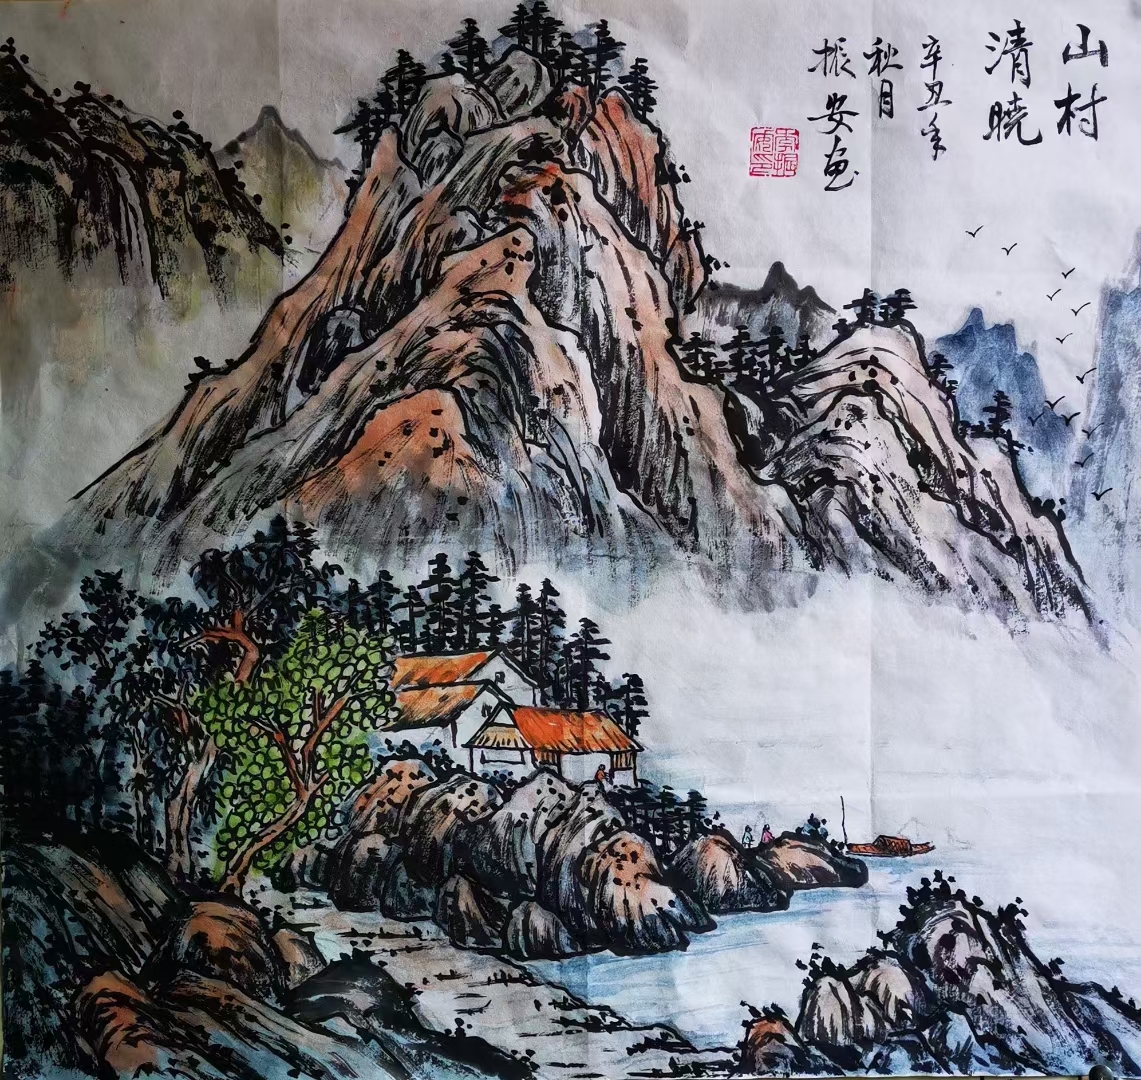 山村
清晓
辛丑年
秋月
振安画